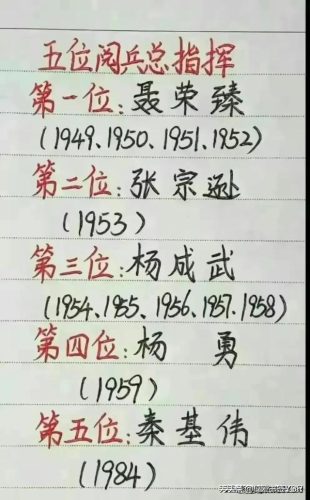 五位阅兵总指挥
第一位:聂荣臻
(1949、1950、1951、1952)
第二位:张宗逊
(1953)
第三位:杨成武
(1954、1955、1956、1957.1958)
第四位:杨 勇
(1959)
第五位:秦基伟
(1984)